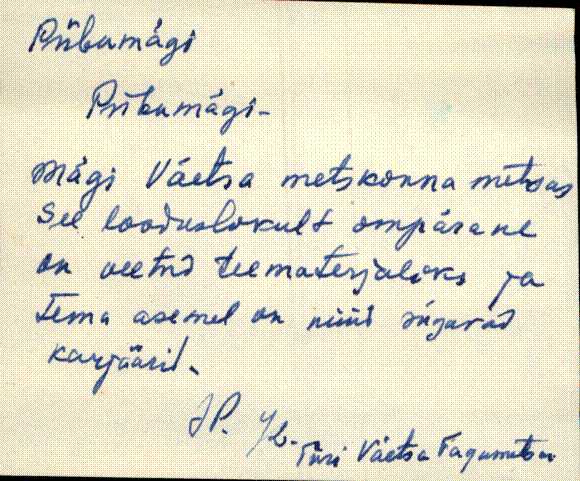 Piibumägi
Piibumägi-
Mägi Väetsa metskonna metsas
See looduslikult ompärane
on veetud teematerjaliks ja
Tema asemel on nüüd sügavad
karjäärid.
Türi Väetsa Tagametsa